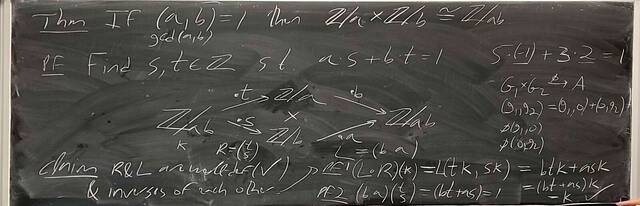 Thm If (a,b)=1 then Z/a × Z/b ≅ Z/ab
gcd(a,b)
Pf Find s,t ∈ Z s.t. a·s+b·t=1
5·(-1)+3·2=1
G₁×G₂ → A
(g₁,g₂) = (g₁,0)+(0,g₂)
φ(g₁,0)
φ(0,g₂)
·t Z/a ·b
Z/ab × Z/ab
k ·s Z/b ·a
R=(t s) L=(b a)
Claim R&L are well def (✓)
& inverses of each other
Pf 1 (L∘R)(k)=L(tk, sk) = btk+ask
=(bt+as)k
=k ✓
Pf 2 (b a)(t s)=(bt+as)=1